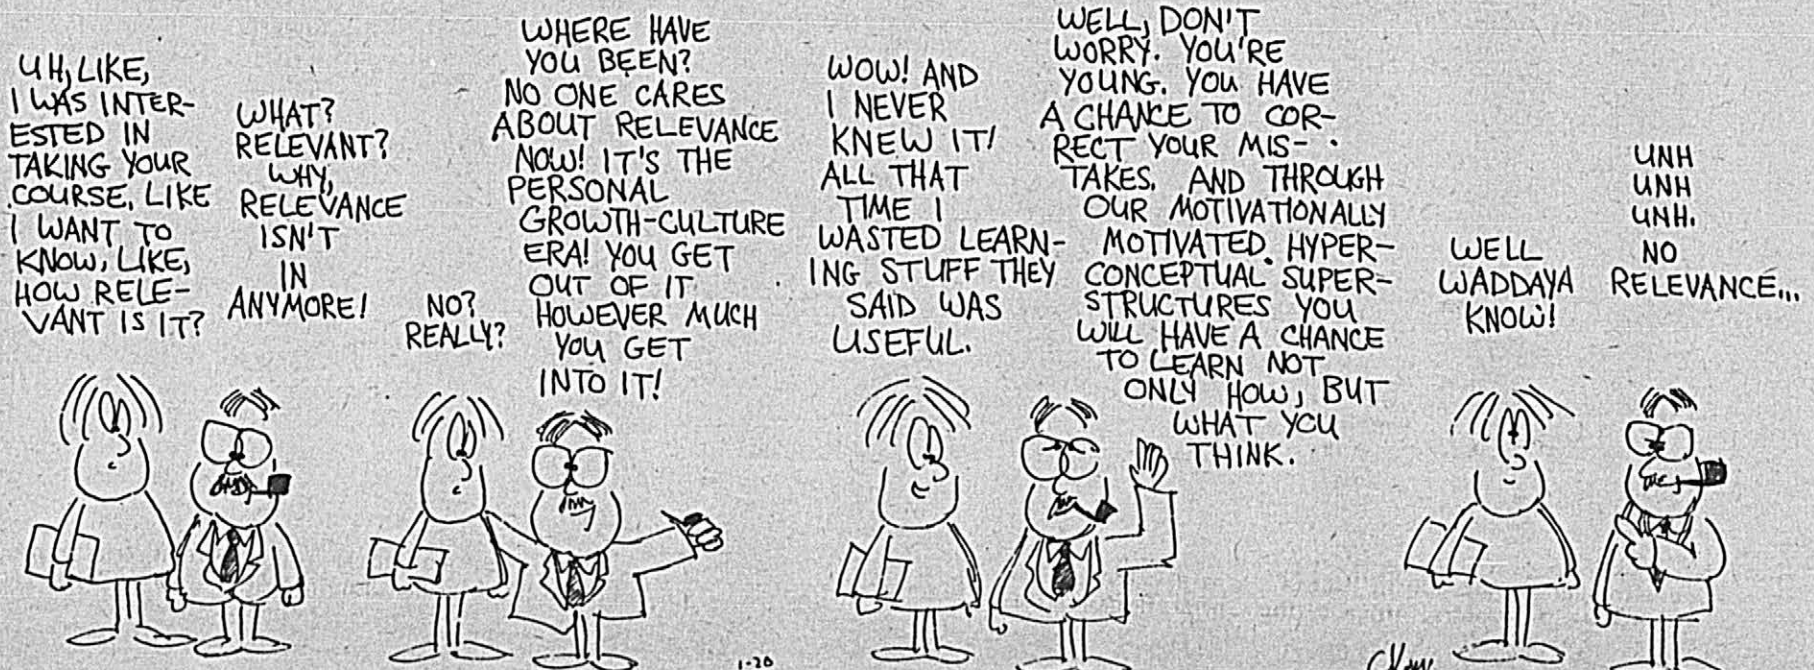 UH, LIKE,
I WAS INTER-
ESTED IN
TAKING YOUR
COURSE. LIKE
I WANT TO
KNOW, LIKE,
HOW RELE-
VANT IS IT?
WHAT?
RELEVANT?
WHY,
RELEVANCE
ISN'T
IN
ANYMORE!
NO?
REALLY?
WHERE HAVE
YOU BEEN?
NO ONE CARES
ABOUT RELEVANCE
NOW! IT'S THE
PERSONAL
GROWTH-CULTURE
ERA! YOU GET
OUT OF IT
HOWEVER MUCH
YOU GET
INTO IT!
WOW! AND
I NEVER
KNEW IT!
ALL THAT
TIME I
WASTED LEARN-
ING STUFF THEY
SAID WAS
USEFUL.
WELL, DON'T
WORRY. YOU'RE
YOUNG. YOU HAVE
A CHANCE TO COR-
RECT YOUR MIS-
TAKES. AND THROUGH
OUR MOTIVATIONALLY
MOTIVATED HYPER-
CONCEPTUAL SUPER-
STRUCTURES YOU
WILL HAVE A CHANCE
TO LEARN NOT
ONLY HOW, BUT
WHAT YOU
THINK.
WELL
WADDAYA
KNOW!
UNH
UNH
UNH.
NO
RELEVANCE...
1-20